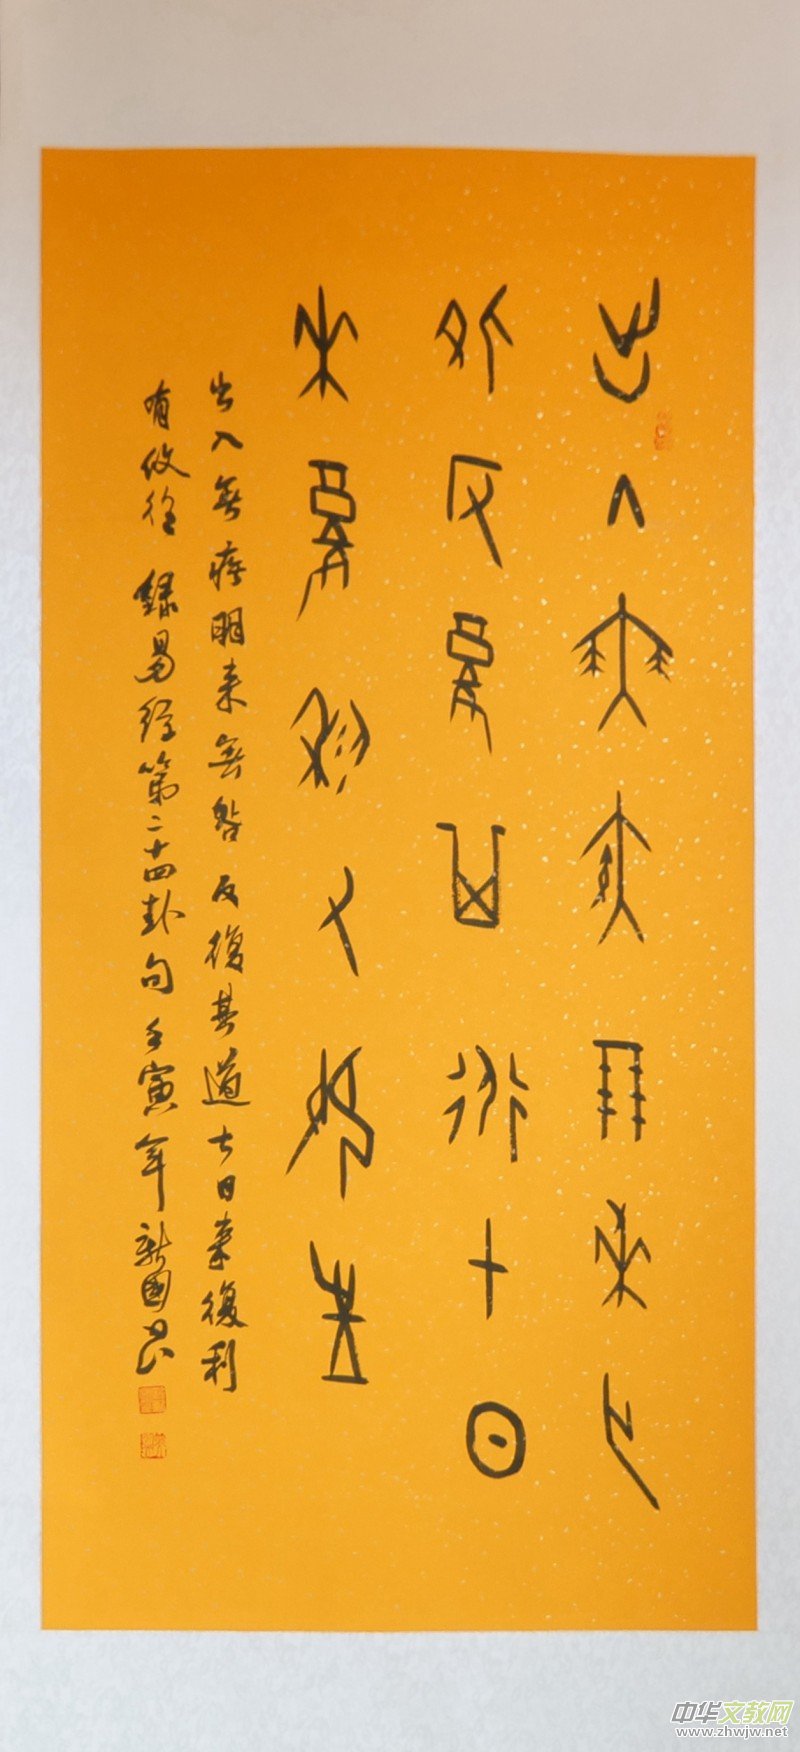 出入無疾朋來亡
咎反復其道七日
來復利又攸往
出入無疾朋来無咎反復其道七日来復利
有攸往 録易經第二十四卦句 壬寅年 國
中华文教网
www.zhwjw.net